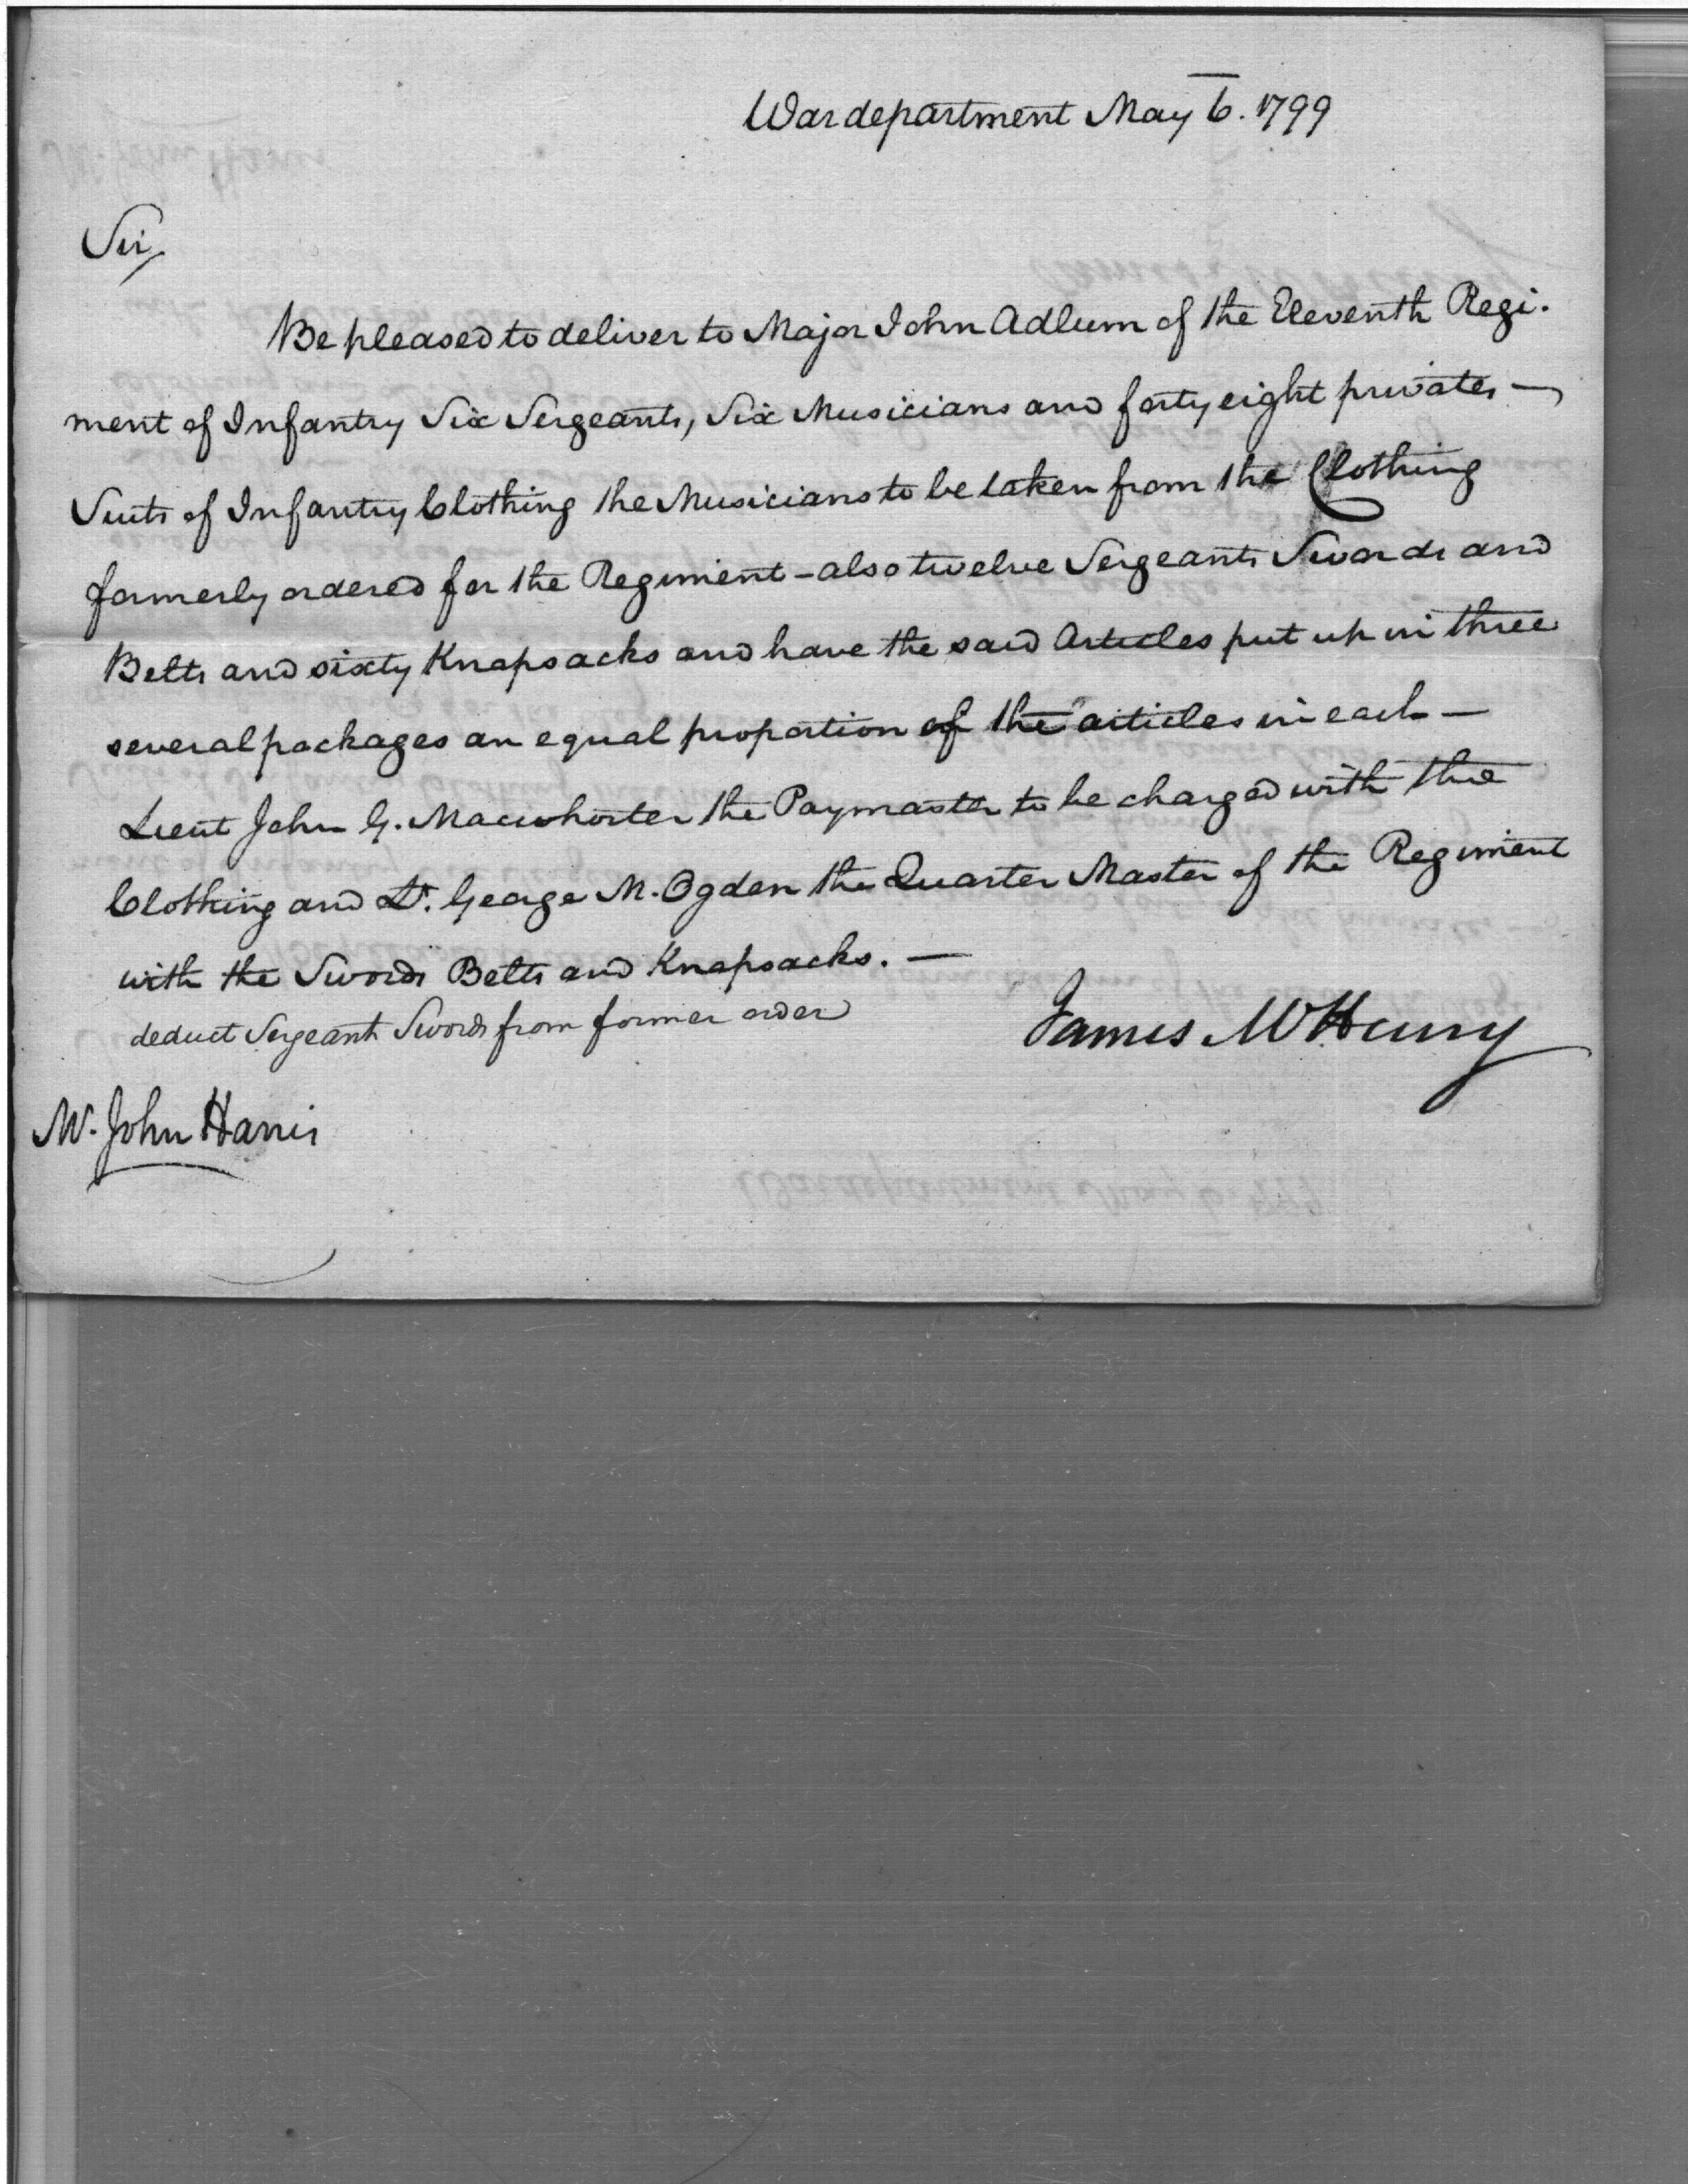 War department May 6. 1799
Sir,
Be pleased to deliver to Major John Adlum of the Eleventh Regi.
ment of Infantry Six Sergeants, Six Musicians and forty eight privates —
Suits of Infantry Clothing the Musicians to be taken from the Clothing
formerly ordered for the Regiment – also twelve Sergeants Swords and
Belts and sixty Knapsacks and have the said Articles put up in three
several packages an equal proportion of the articles in each —
Lieut John G. Macwhorter the Paymaster to be charged with the
Clothing and Lt. George M. Ogden the Quarter Master of the Regiment
with the Swords Belts and Knapsacks. —
deduct Sergeants Swords from former order
James McHenry
Mr. John Harris